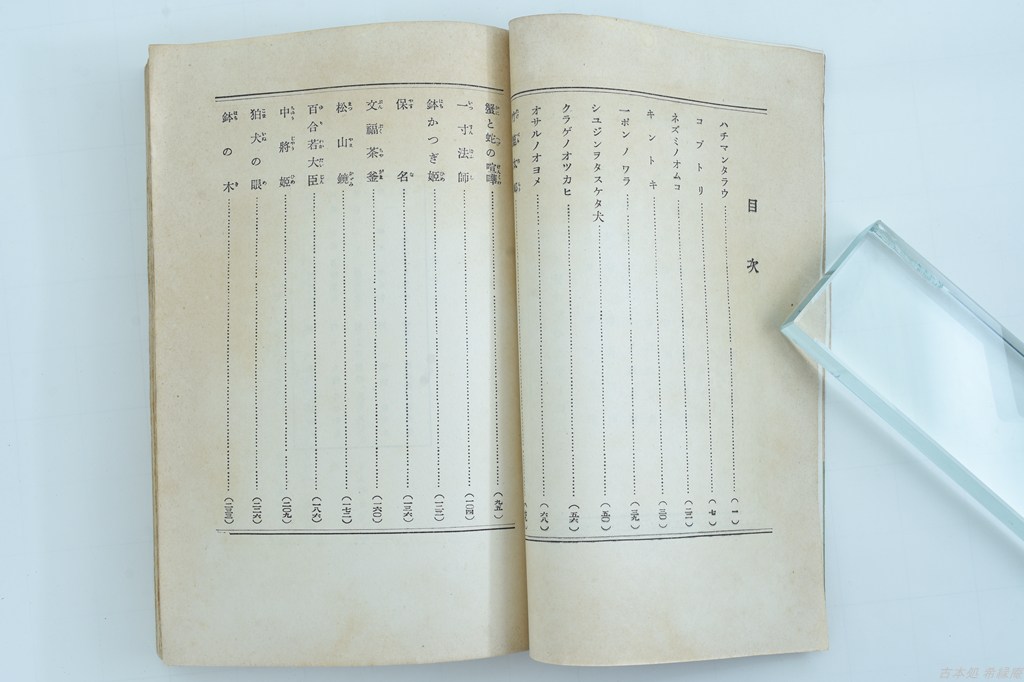 目次
ハチマンタラウ (一)
コブトリ (七)
ネズミノオムコ
キントキ
一ポンノワラ
シユジンヲタスケタ犬 (五〇)
クラゲノオツカヒ (五六)
オサルノオヨメ (六八)
蟹と蛇の喧嘩 (九五)
一寸法師 (一〇四)
鉢かつぎ姫
保名 (一三六)
文福茶釜 (一六〇)
松山鏡 (一七二)
百合若大臣 (一八六)
中將姫 (二〇九)
狛犬の眼 (二二六)
鉢の木
古本処 者縁庵